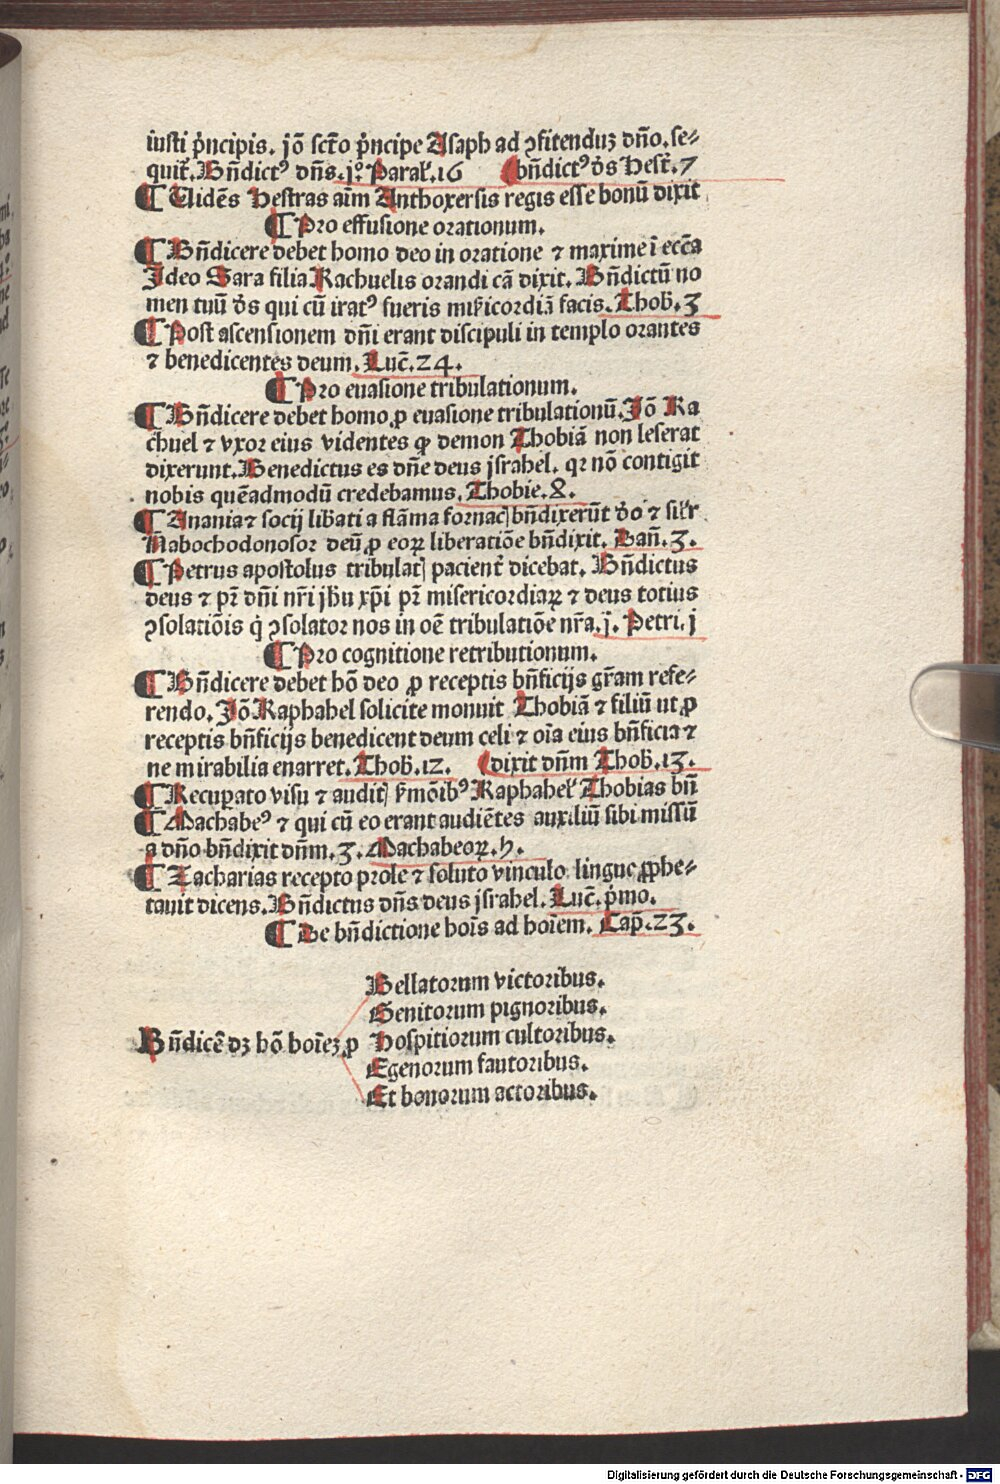 iusti pͥncipis. jō scr̄o pͥncipe Asaph ad ꝯfitenduꝫ dn̄o. se⸗
quit᷑. Bn̄dictꝰ dn̄s. j°. Paral'. 16 bn̄dictꝰ dͤs Hest᷑. 7
¶ Uidēs Hestras aīm Anthoxersis regis esse bonū dixit
¶ Pro effusione orationum.
¶ Bn̄dicere debet homo deo in oratione ⁊ maxime ī ecc̄a
Ideo Sara filia Rachuelis orandi cā dixit. Bn̄dictū no
men tuū dͤs qui cū iratꝰ fueris mīsicordiā facis. Thob̄. 3
¶ Post ascensionem dn̄i erant discipuli in templo orantes
⁊ benedicentes deum. Luc̄. 24.
¶ Pro euasione tribulationum.
¶ Bn̄dicere debet homo ꝓ euasione tribulationū. Jō Ra
chuel ⁊ vxor eius videntes ꝙ demon Thobiā non leserat
dixerunt. Benedictus es dn̄e deus jsrahel. qꝛ nō contigit
nobis quēadmodū credebamus. Thobie. 8.
¶ Anania ⁊ socij lib̄ati a flāma fornacꝭ bn̄dixerūt dͤo ⁊ sil'r
Nabochodonosor deū ꝓ eoꝝ liberatiōe bn̄dixit. Dan̄. 3.
¶ Petrus apostolus tribulatꝭ pacient᷑ dicebat. Bn̄dictus
deus ⁊ pꝛ dn̄i nr̄i jh̄u xp̄i pꝛ misericordiaꝝ ⁊ deus totius
ꝯsolatiōis qͥ ꝯsolator nos in oē tribulatiōe nr̄a. j. Petri. j
¶ Pro cognitione retributionum.
¶ Bn̄dicere debet hō deo ꝓ receptis bn̄ficijs gr̄am refe⸗
rendo. Jō Raphahel solicite monuit Thobiā ⁊ filiū ut ꝓ
receptis bn̄ficijs benedicent deum celi ⁊ oīa eius bn̄ficia ⁊
ne mirabilia enarret. Thob̄. 12. dixit dn̄m Thob̄. 13.
¶ Recuꝑato visu ⁊ auditꝭ s̄mōibꝰ Raphahel' Thobias bn̄
¶ Machabeꝰ ⁊ qui cū eo erant audiētes auxiliū sibi missū
a dn̄o bn̄dixit dn̄m. 3. Machabeoꝝ. h.
¶ Zacharias recepto prole ⁊ soluto vinculo lingue ꝓphe⸗
tauit dicens. Bn̄dictus dn̄s deus jsrahel. Luc̄. pͥmo.
¶ De bn̄dictione hoīs ad hoīem. Cap̄. 23.
Bellatorum victoribus.
Genitorum pignoribus.
Bn̄dicē dꝫ hō hoīeꝫ ꝓ Hospitiorum cultoribus.
Egenorum fautoribus.
Et bonorum actoribus.
Digitalisierung gefördert durch die Deutsche Forschungsgemeinschaft - DFG